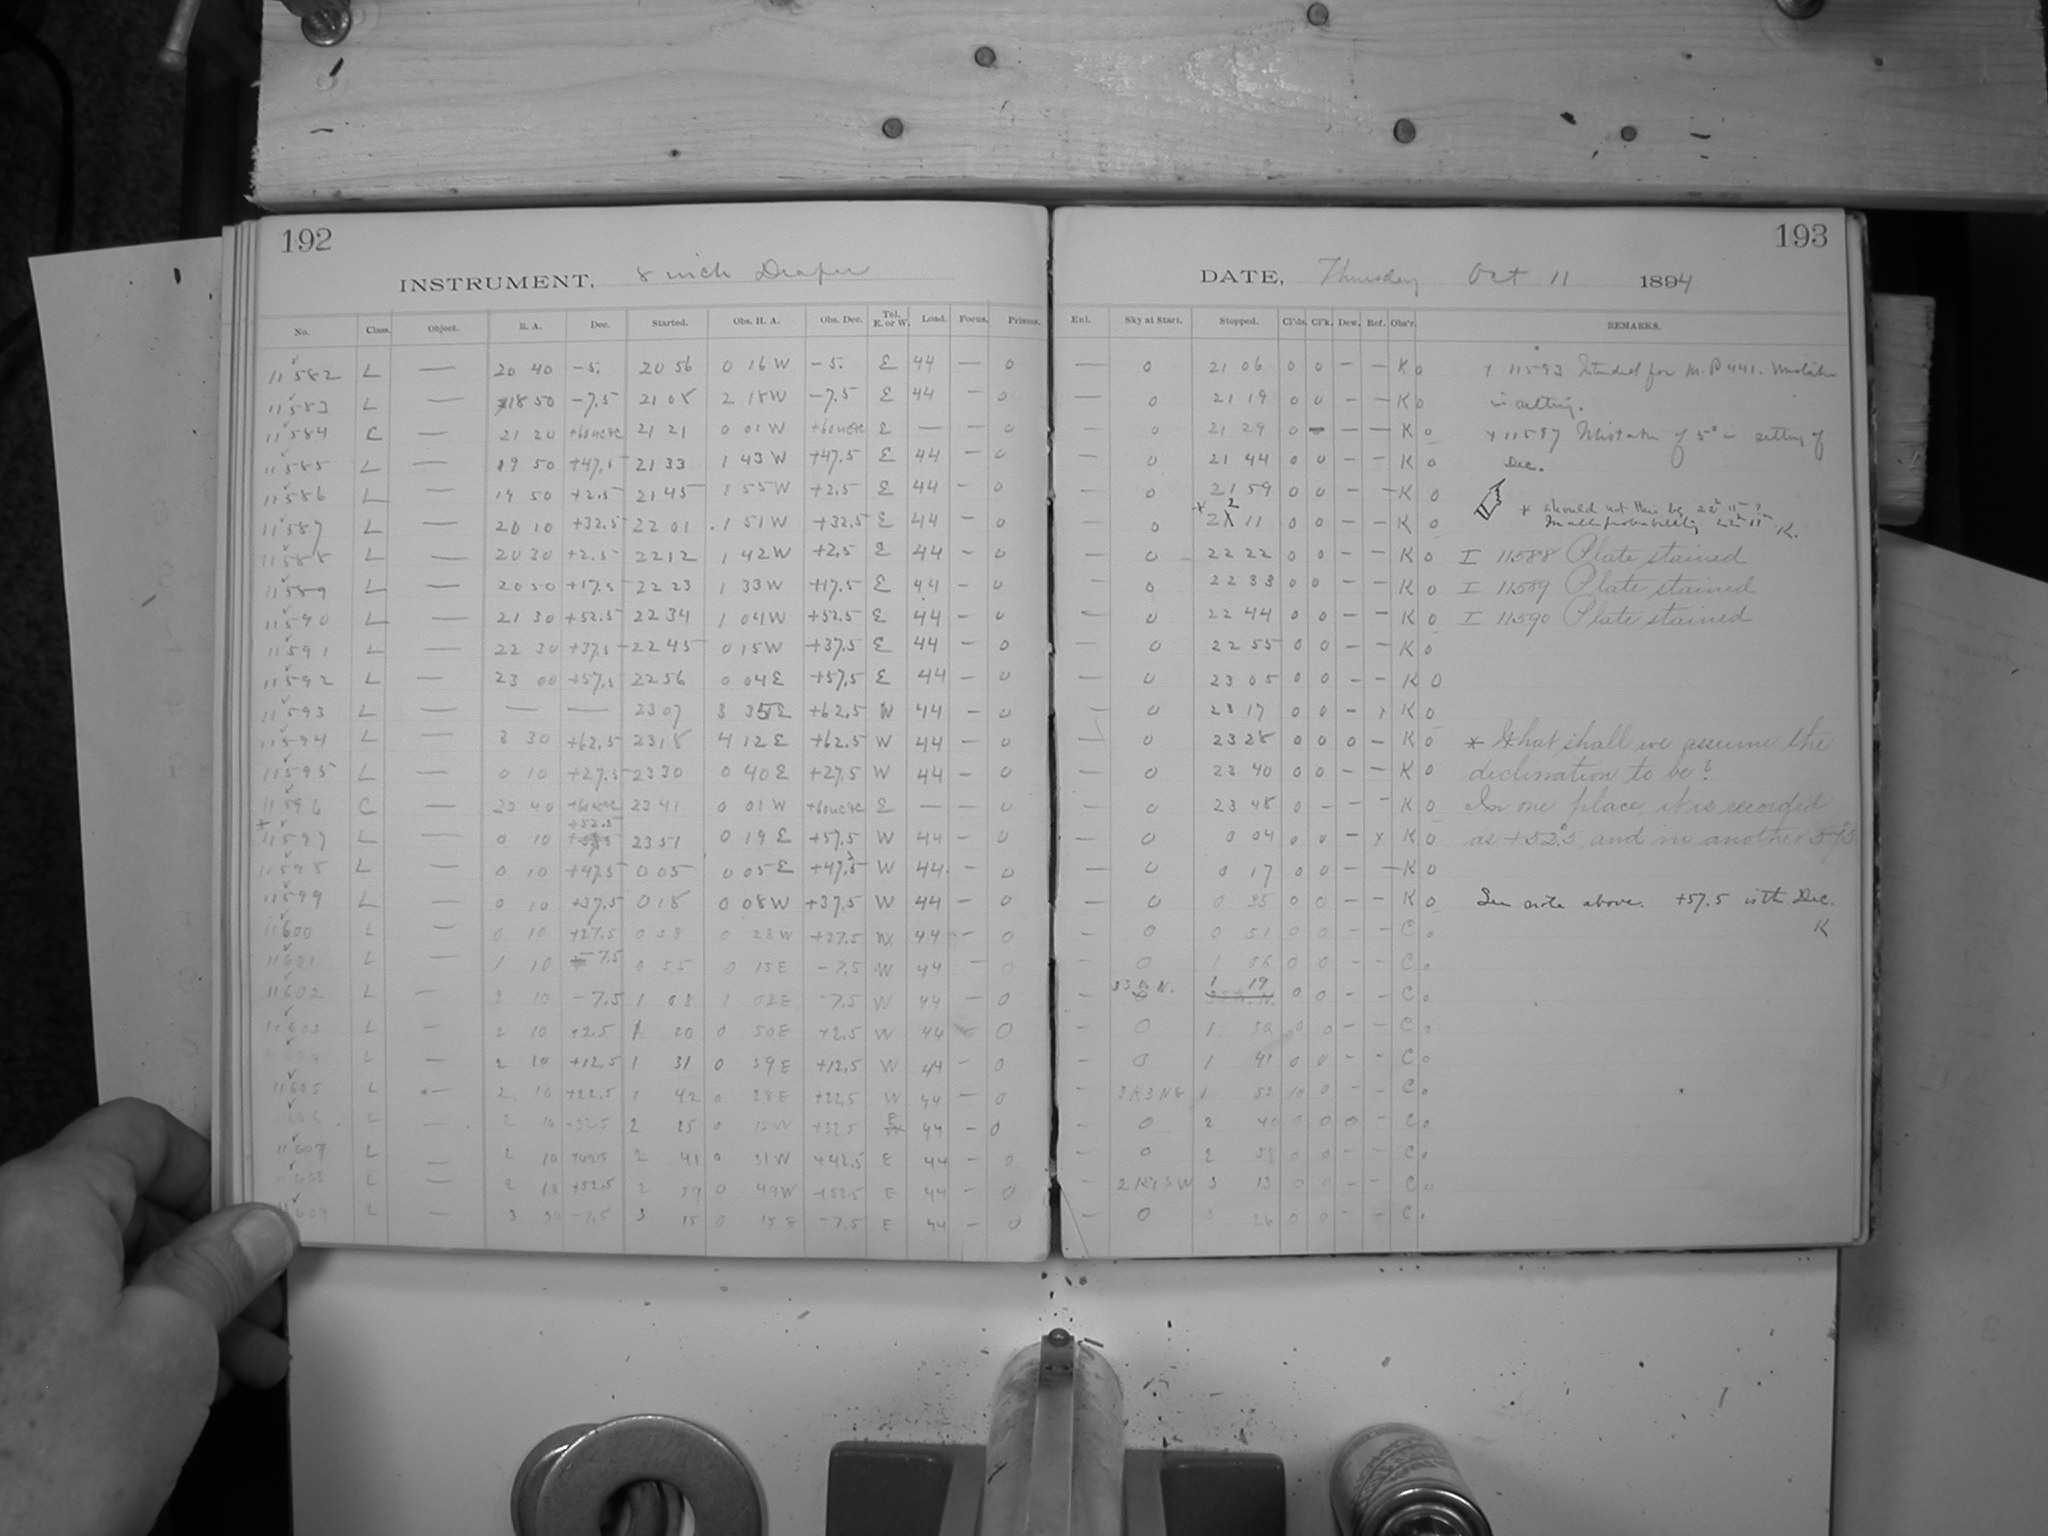 192
INSTRUMENT, 8 inch Draper
No. Class. Object. R. A. Dec. Started. Obs. H. A. Obs. Dec. Tel. E. or W. Load. Focus. Prisms.
11582 L — 20 40 -5. 20 56 0 16 W -5. E 44 — 0
11583 L — 18 50 -7.5 21 08 2 18 W -7.5 E 44 — 0
11584 C — 21 20 21 21 0 01 W E — 0
11585 L — 19 50 +47.5 21 33 1 43 W +47.5 E 44 — 0
11586 L — 19 50 +2.5 21 45 1 55 W +2.5 E 44 — 0
11587 L — 20 10 +32.5 22 01 1 51 W +32.5 E 44 — 0
11588 L — 20 30 +2.5 22 12 1 42 W +2.5 E 44 — 0
11589 L — 20 50 +17.5 22 23 1 33 W +17.5 E 44 — 0
11590 L — 21 30 +52.5 22 34 1 04 W +52.5 E 44 — 0
11591 L — 22 30 +37.5 22 45 0 15 W +37.5 E 44 — 0
11592 L — 23 00 +57.5 22 56 0 04 E +57.5 E 44 — 0
11593 L — — — 23 07 3 35 E +62.5 W 44 — 0
11594 L — 3 30 +62.5 23 18 4 12 E +62.5 W 44 — 0
11595 L — 0 10 +27.5 23 30 0 40 E +27.5 W 44 — 0
11596 C — 23 40 23 41 0 01 W E — — 0
+52.5
* 11597 L — 0 10 23 51 0 19 E +57.5 W 44 — 0
11598 L — 0 10 +47.5 0 05 0 05 E +47.5 W 44 — 0
11599 L — 0 10 +37.5 0 18 0 08 W +37.5 W 44 — 0
11600 L — 0 10 +27.5 0 38 0 28 W +27.5 W 44 — 0
11601 L — 1 10 -7.5 0 55 0 15 E -7.5 W 44 — 0
11602 L — 2 10 -7.5 1 08 1 02 E -7.5 W 44 — 0
11603 L — 2 10 +2.5 1 20 0 50 E +2.5 W 44 — 0
L — 2 10 +12.5 1 31 0 39 E +12.5 W 44 — 0
11605 L — 2 10 +22.5 1 42 0 28 E +22.5 W 44 — 0
L — 2 10 +32.5 2 25 0 15 W +32.5 E 44 — 0
11607 L — 2 10 +42.5 2 41 0 31 W +42.5 E 44 — 0
11608 L — 2 10 +52.5 2 59 0 49 W +52.5 E 44 — 0
11609 L — 3 30 -7.5 3 15 0 15 E -7.5 E 44 — 0
193
DATE, Thursday Oct 11 1894
Enl. Sky at Start. Stopped. Cl'ds. Cl'k. Dew. Ref. Obs'r. REMARKS.
— 0 21 06 0 0 — — K 0 x 11593 Intended for M.P 441. Mistake
— 0 21 19 0 0 — — K 0 in setting.
— 0 21 29 0 — — — K 0 x 11587 Mistake of 5° in setting of
— 0 21 44 0 0 — — K 0 Dec.
— 0 21 59 0 0 — — K 0 * should not this be 22h 11m?
— 0 22 11 0 0 — — K 0 In all probability 22h 11m K.
— 0 22 22 0 0 — — K 0 I 11588 Plate stained
— 0 22 33 0 0 — — K 0 I 11589 Plate stained
— 0 22 44 0 0 — — K 0 I 11590 Plate stained
— 0 22 55 0 0 — — K 0
— 0 23 05 0 0 — — K 0
— 0 23 17 0 0 — x K 0
— 0 23 28 0 0 0 — K 0 * What shall we assume the
— 0 23 40 0 0 — — K 0 declination to be?
— 0 23 48 0 — — — K 0 In one place it is recorded
— 0 0 04 0 0 — x K 0 as +52.5 and in another 57.5
— 0 0 17 0 0 — — K 0
— 0 0 35 0 0 — — K 0 See note above. +57.5 is the Dec.
— 0 0 51 0 0 — — C 0 K
— 0 1 06 0 0 — — C 0
— 1 19 0 0 — — C 0
— 0 1 30 0 0 — — C 0
— 0 1 41 0 0 — — C 0
— 3 K 3 NE 1 52 10 0 — — C 0
— 0 2 40 0 0 0 — C 0
— 0 2 56 0 0 — — C 0
— 3 13 0 0 — — C 0
— 0 3 26 0 0 — — C 0